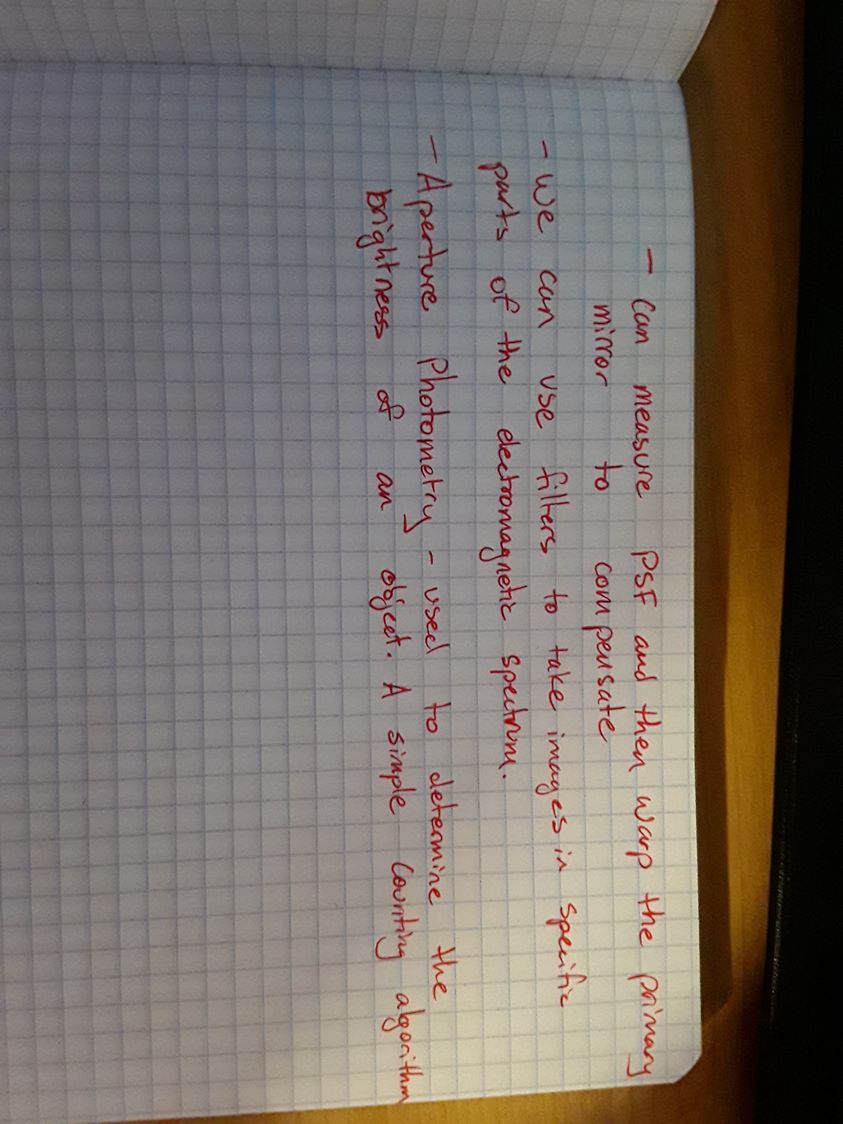 - Can measure PSF and then warp the primary
mirror to compensate
- We can use filters to take images in specific
parts of the electromagnetic spectrum.
- Aperture Photometry - used to determine the
brightness of an object. A simple counting algorithm